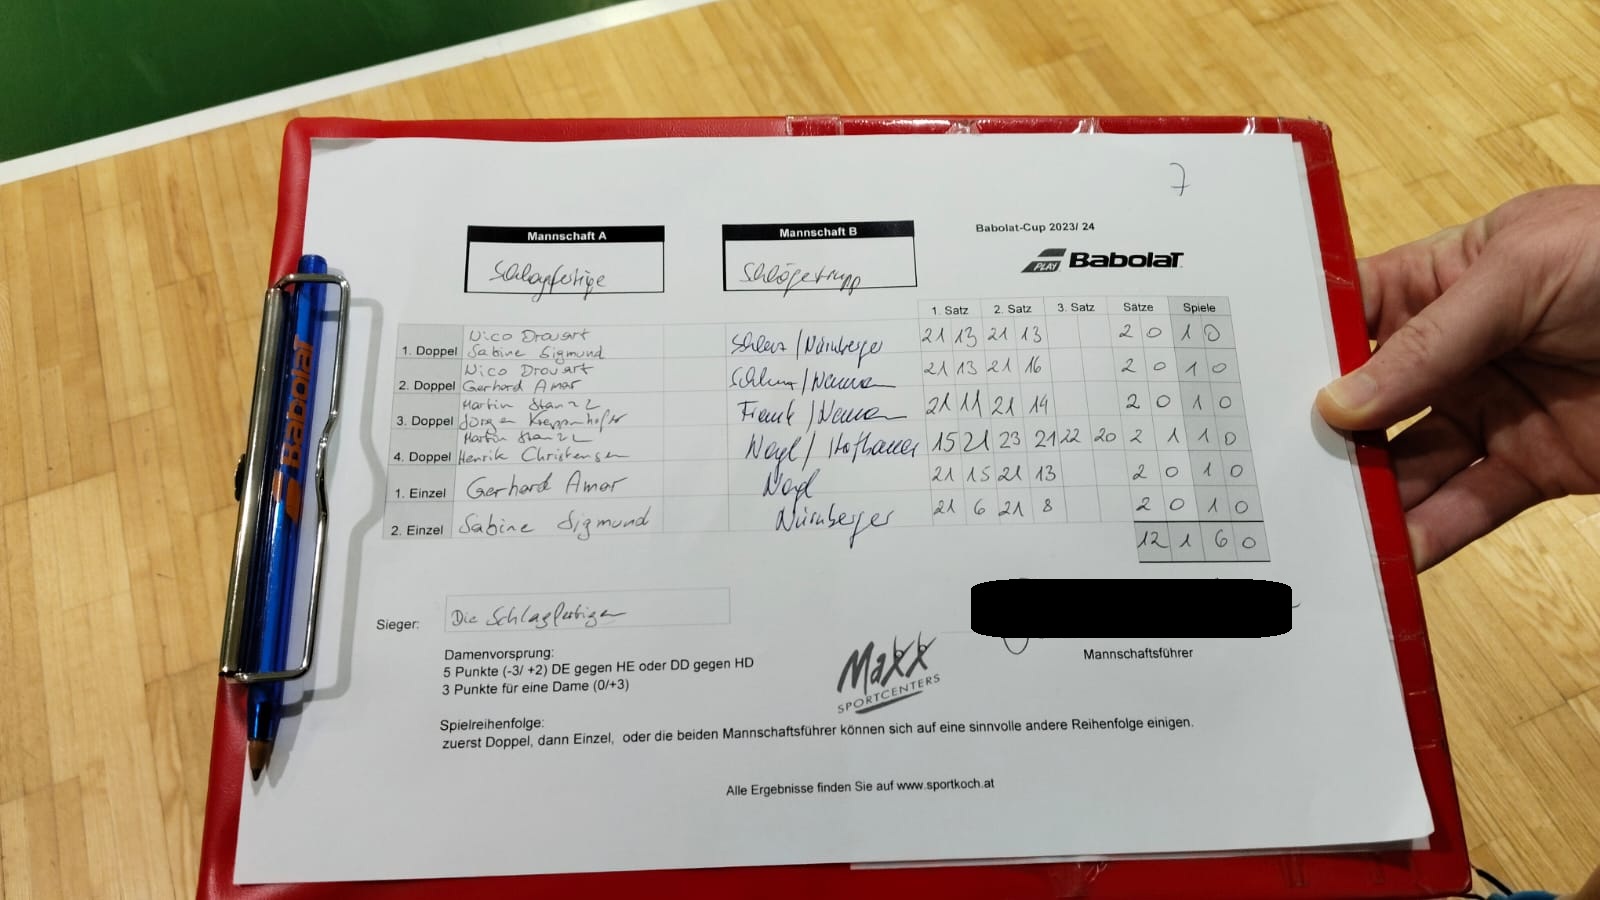 7
Mannschaft A
Mannschaft B
Babolat-Cup 2023/ 24
Schlagfertige
Schlägertrupp
PLAY BabolaT
1. Satz 2. Satz 3. Satz Sätze Spiele
Nico Drouart
1. Doppel Sabine Sigmund /Nürnberger 21 13 21 13 2 0 1 0
Nico Drouart
2. Doppel Gerhard Amar 21 13 21 16 2 0 1 0
Martin
3. Doppel Jürgen Frank / 21 11 21 14 2 0 1 0
Martin
4. Doppel Henrik Christensen Nagl / Hofbauer 15 21 23 21 22 20 2 1 1 0
1. Einzel Gerhard Amar Nagl 21 15 21 13 2 0 1 0
2. Einzel Sabine Sigmund Nürnberger 21 6 21 8 2 0 1 0
12 1 6 0
Sieger: Die Schlagfertigen
Mannschaftsführer
Damenvorsprung:
5 Punkte (-3/ +2) DE gegen HE oder DD gegen HD
3 Punkte für eine Dame (0/+3)
MaXX
SPORTCENTERS
Spielreihenfolge:
zuerst Doppel, dann Einzel, oder die beiden Mannschaftsführer können sich auf eine sinnvolle andere Reihenfolge einigen.
Alle Ergebnisse finden Sie auf www.sportkoch.at
Babolat